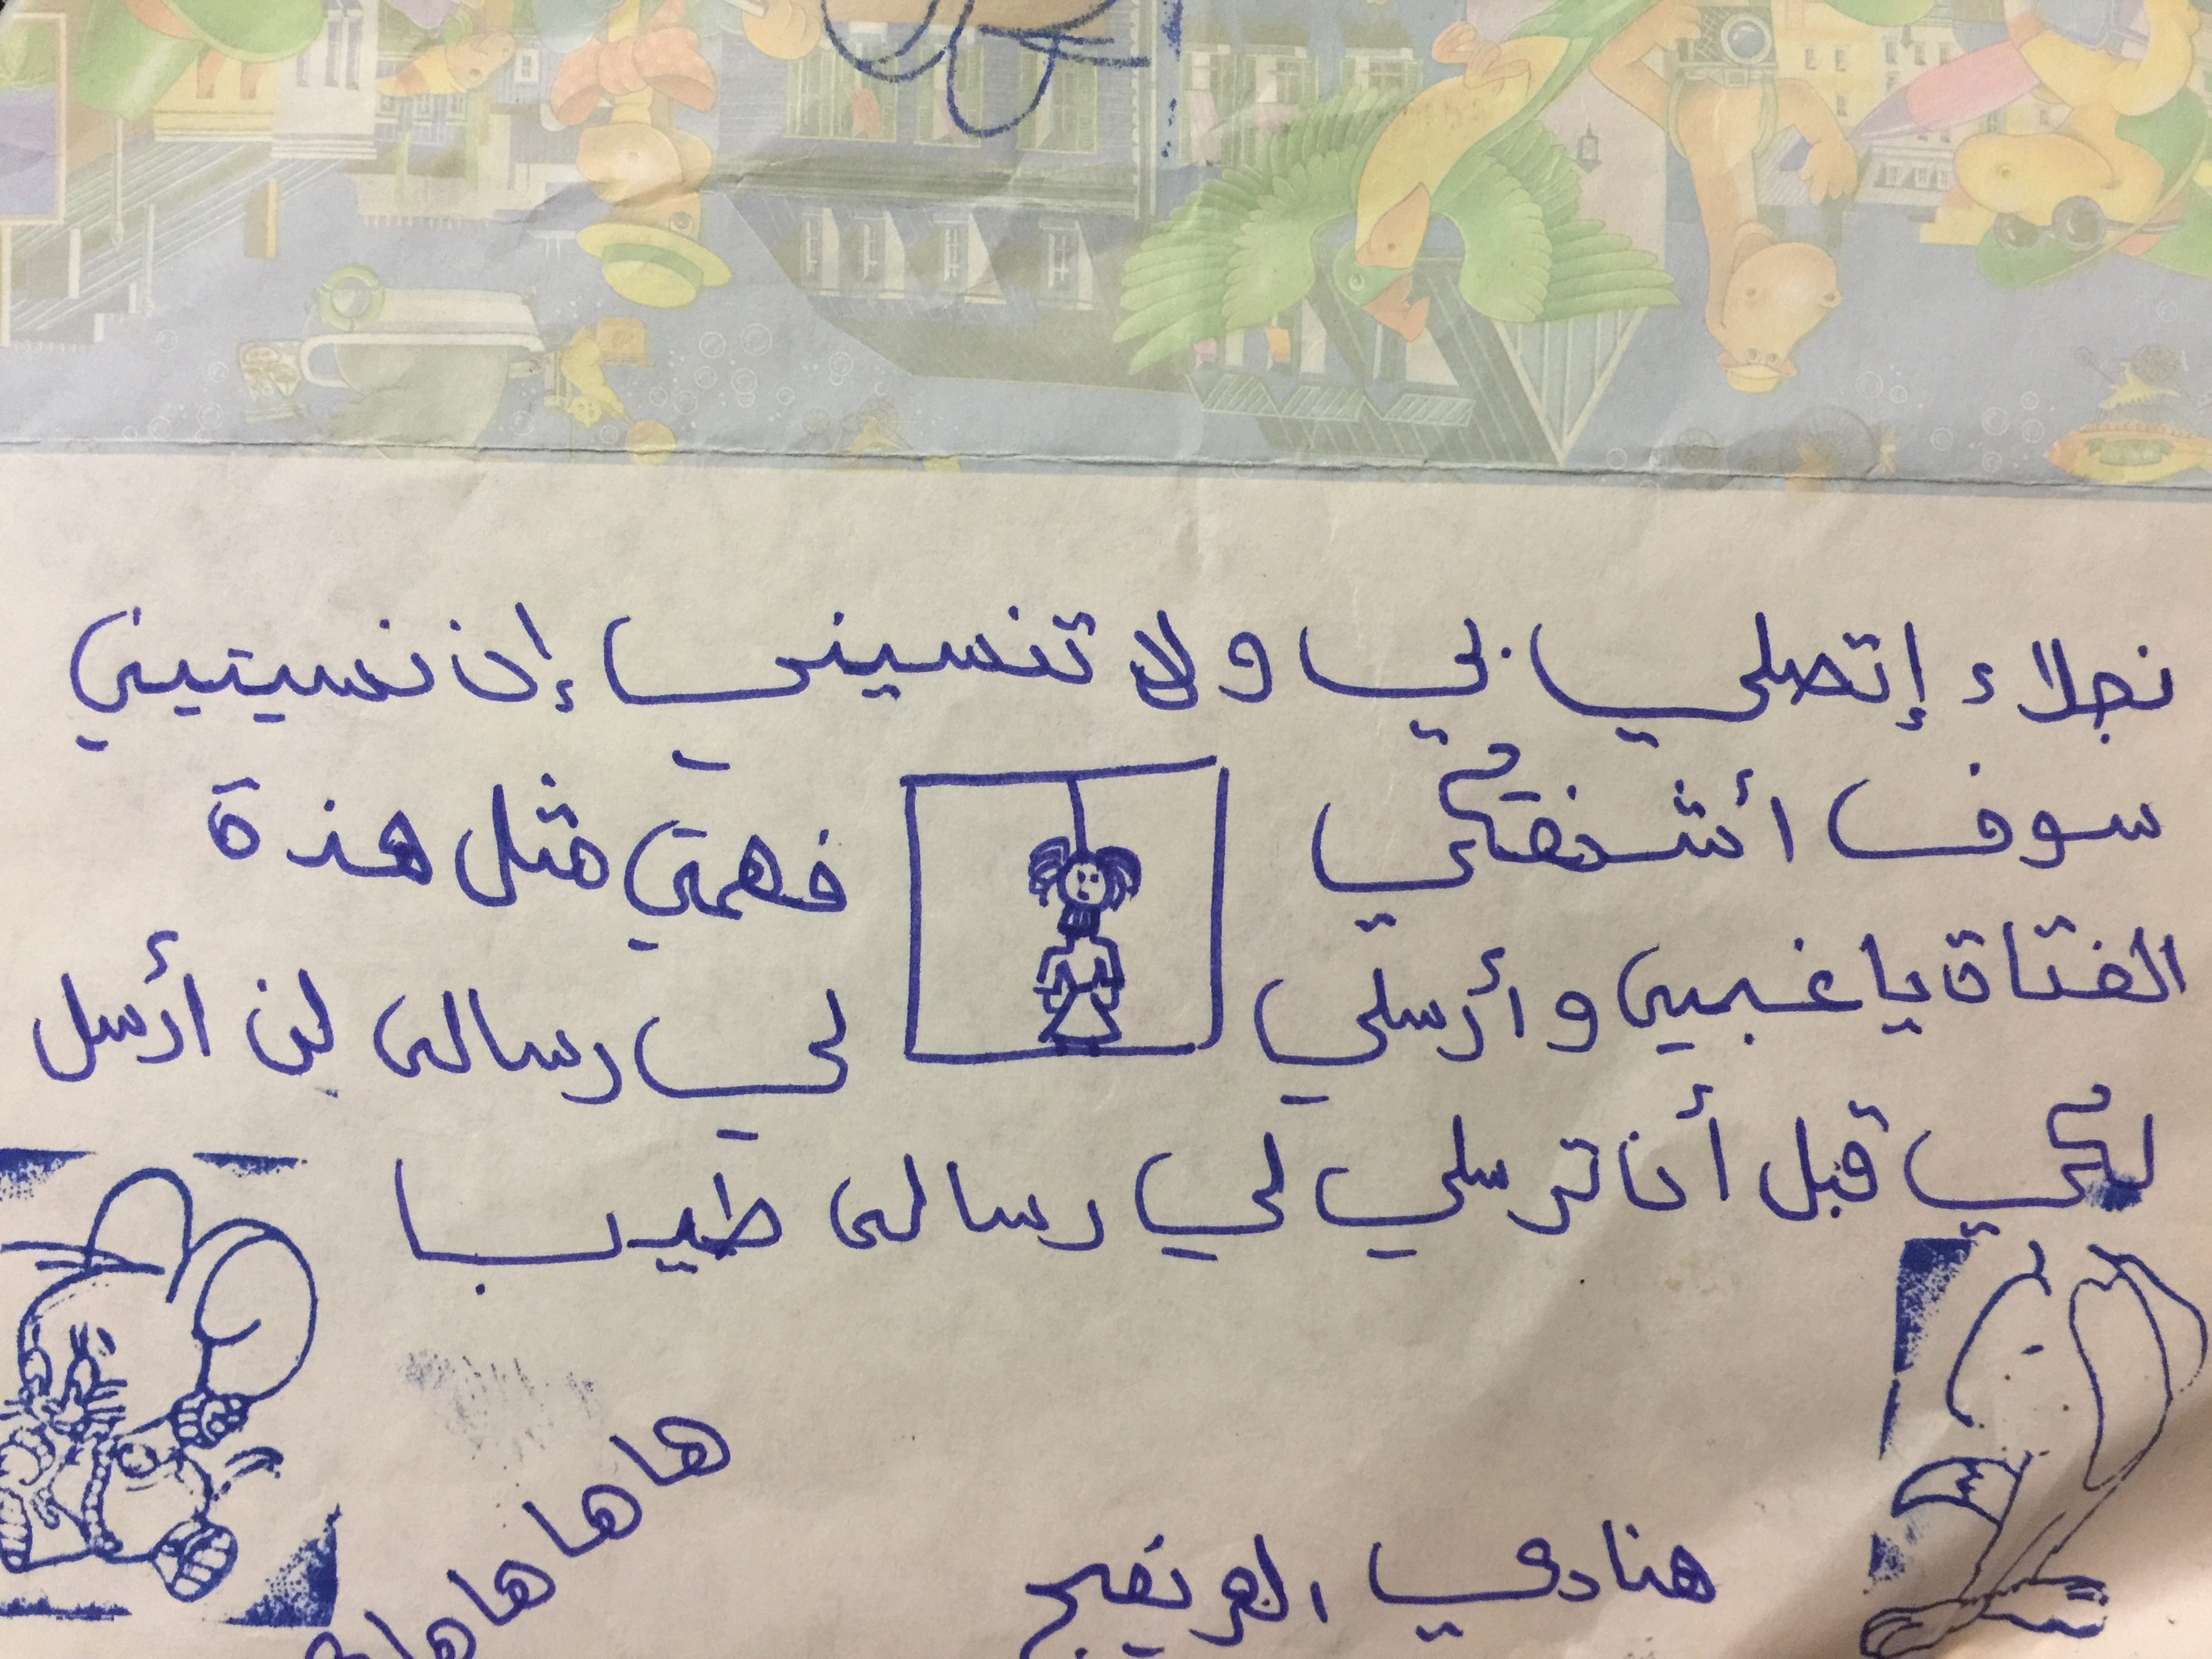 نجلاء إتصلي بي ولا تنسيني إن نسيتيني
سوف أشنقكي فهمتي مثل هذة
الفتاة يا غبيى وأرسلي لي رسالى لن أرسل
لكي قبل أن ترسلي لي رسالى طيب
هنادي العرنفج
ها ها ها ها